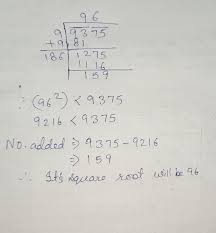 96
9 | 9375
+9 | 81
186 | 1275
1116
159
∴ (96²) < 9375
9216 < 9375
No. added ⇒ 9375 - 9216
⇒ 159
∴ It's square root will be 96